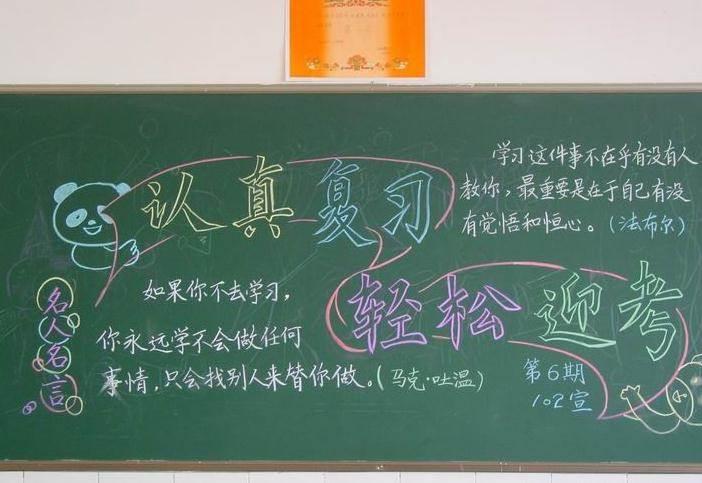 认真复习
轻松迎考
学习这件事不在乎有没有人
教你，最重要是在于自己有没
有觉悟和恒心。（法布尔）
名人名言
如果你不去学习，
你永远学不会做任何
事情，只会找别人来替你做。（马克·吐温）
第6期
102宣